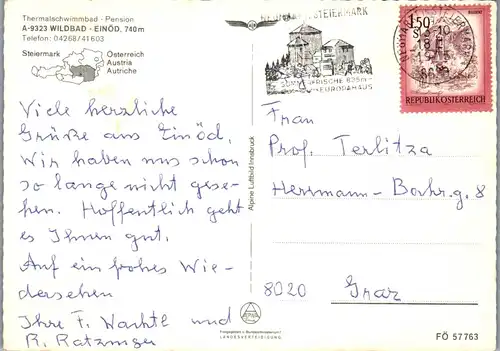 Thermalschwimmbad - Pension
A-9323 WILDBAD - EINÖD, 740m
Telefon: 04268/41603
Steiermark
Österreich
Austria
Autriche
Viele herzliche
Grüße aus Einöd.
Wir haben uns schon
so lange nicht gese-
hen. Hoffentlich geht
es Ihnen gut.
Auf ein frohes Wie-
dersehen
Ihre F. Wachtl und
R. Ratzinger
Alpine Luftbild Innsbruck
LANDESVERTEIDIGUNG
NEUMARKT STEIERMARK
EUROPAHAUS
1.50
REPUBLIK ÖSTERREICH
Frau
Prof. Terlitza
Herrmann-Bahr-g. 8
8020 Graz
FÖ 57763